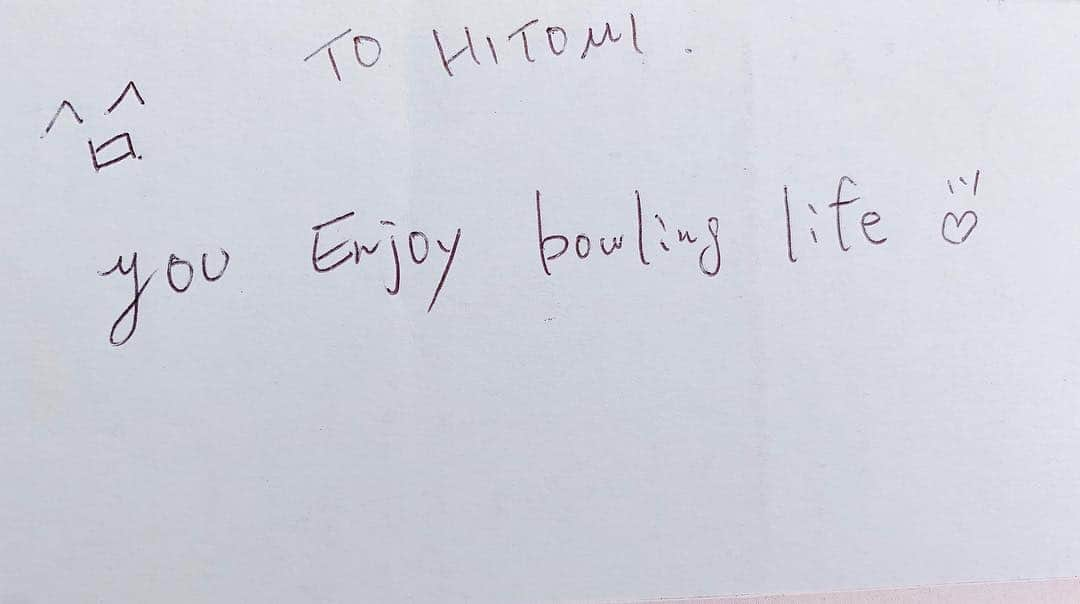 TO HITOMI.
you Enjoy bowling life ♡